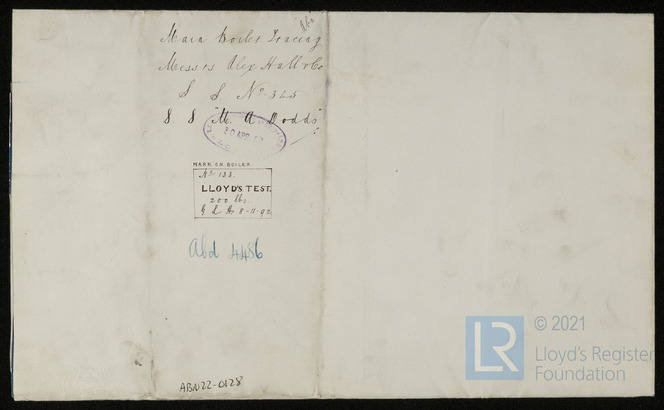 Main Boiler Tracing
Messrs Alex Hall & Co
S S No 345
S. S "M. A Dodds"
20 APR
MARK ON BOILER.
No 133.
LLOYD'S TEST.
200 lbs.
8-11-92
Abd 4486
ABN22-0128
LR
© 2021
Lloyd's Register
Foundation